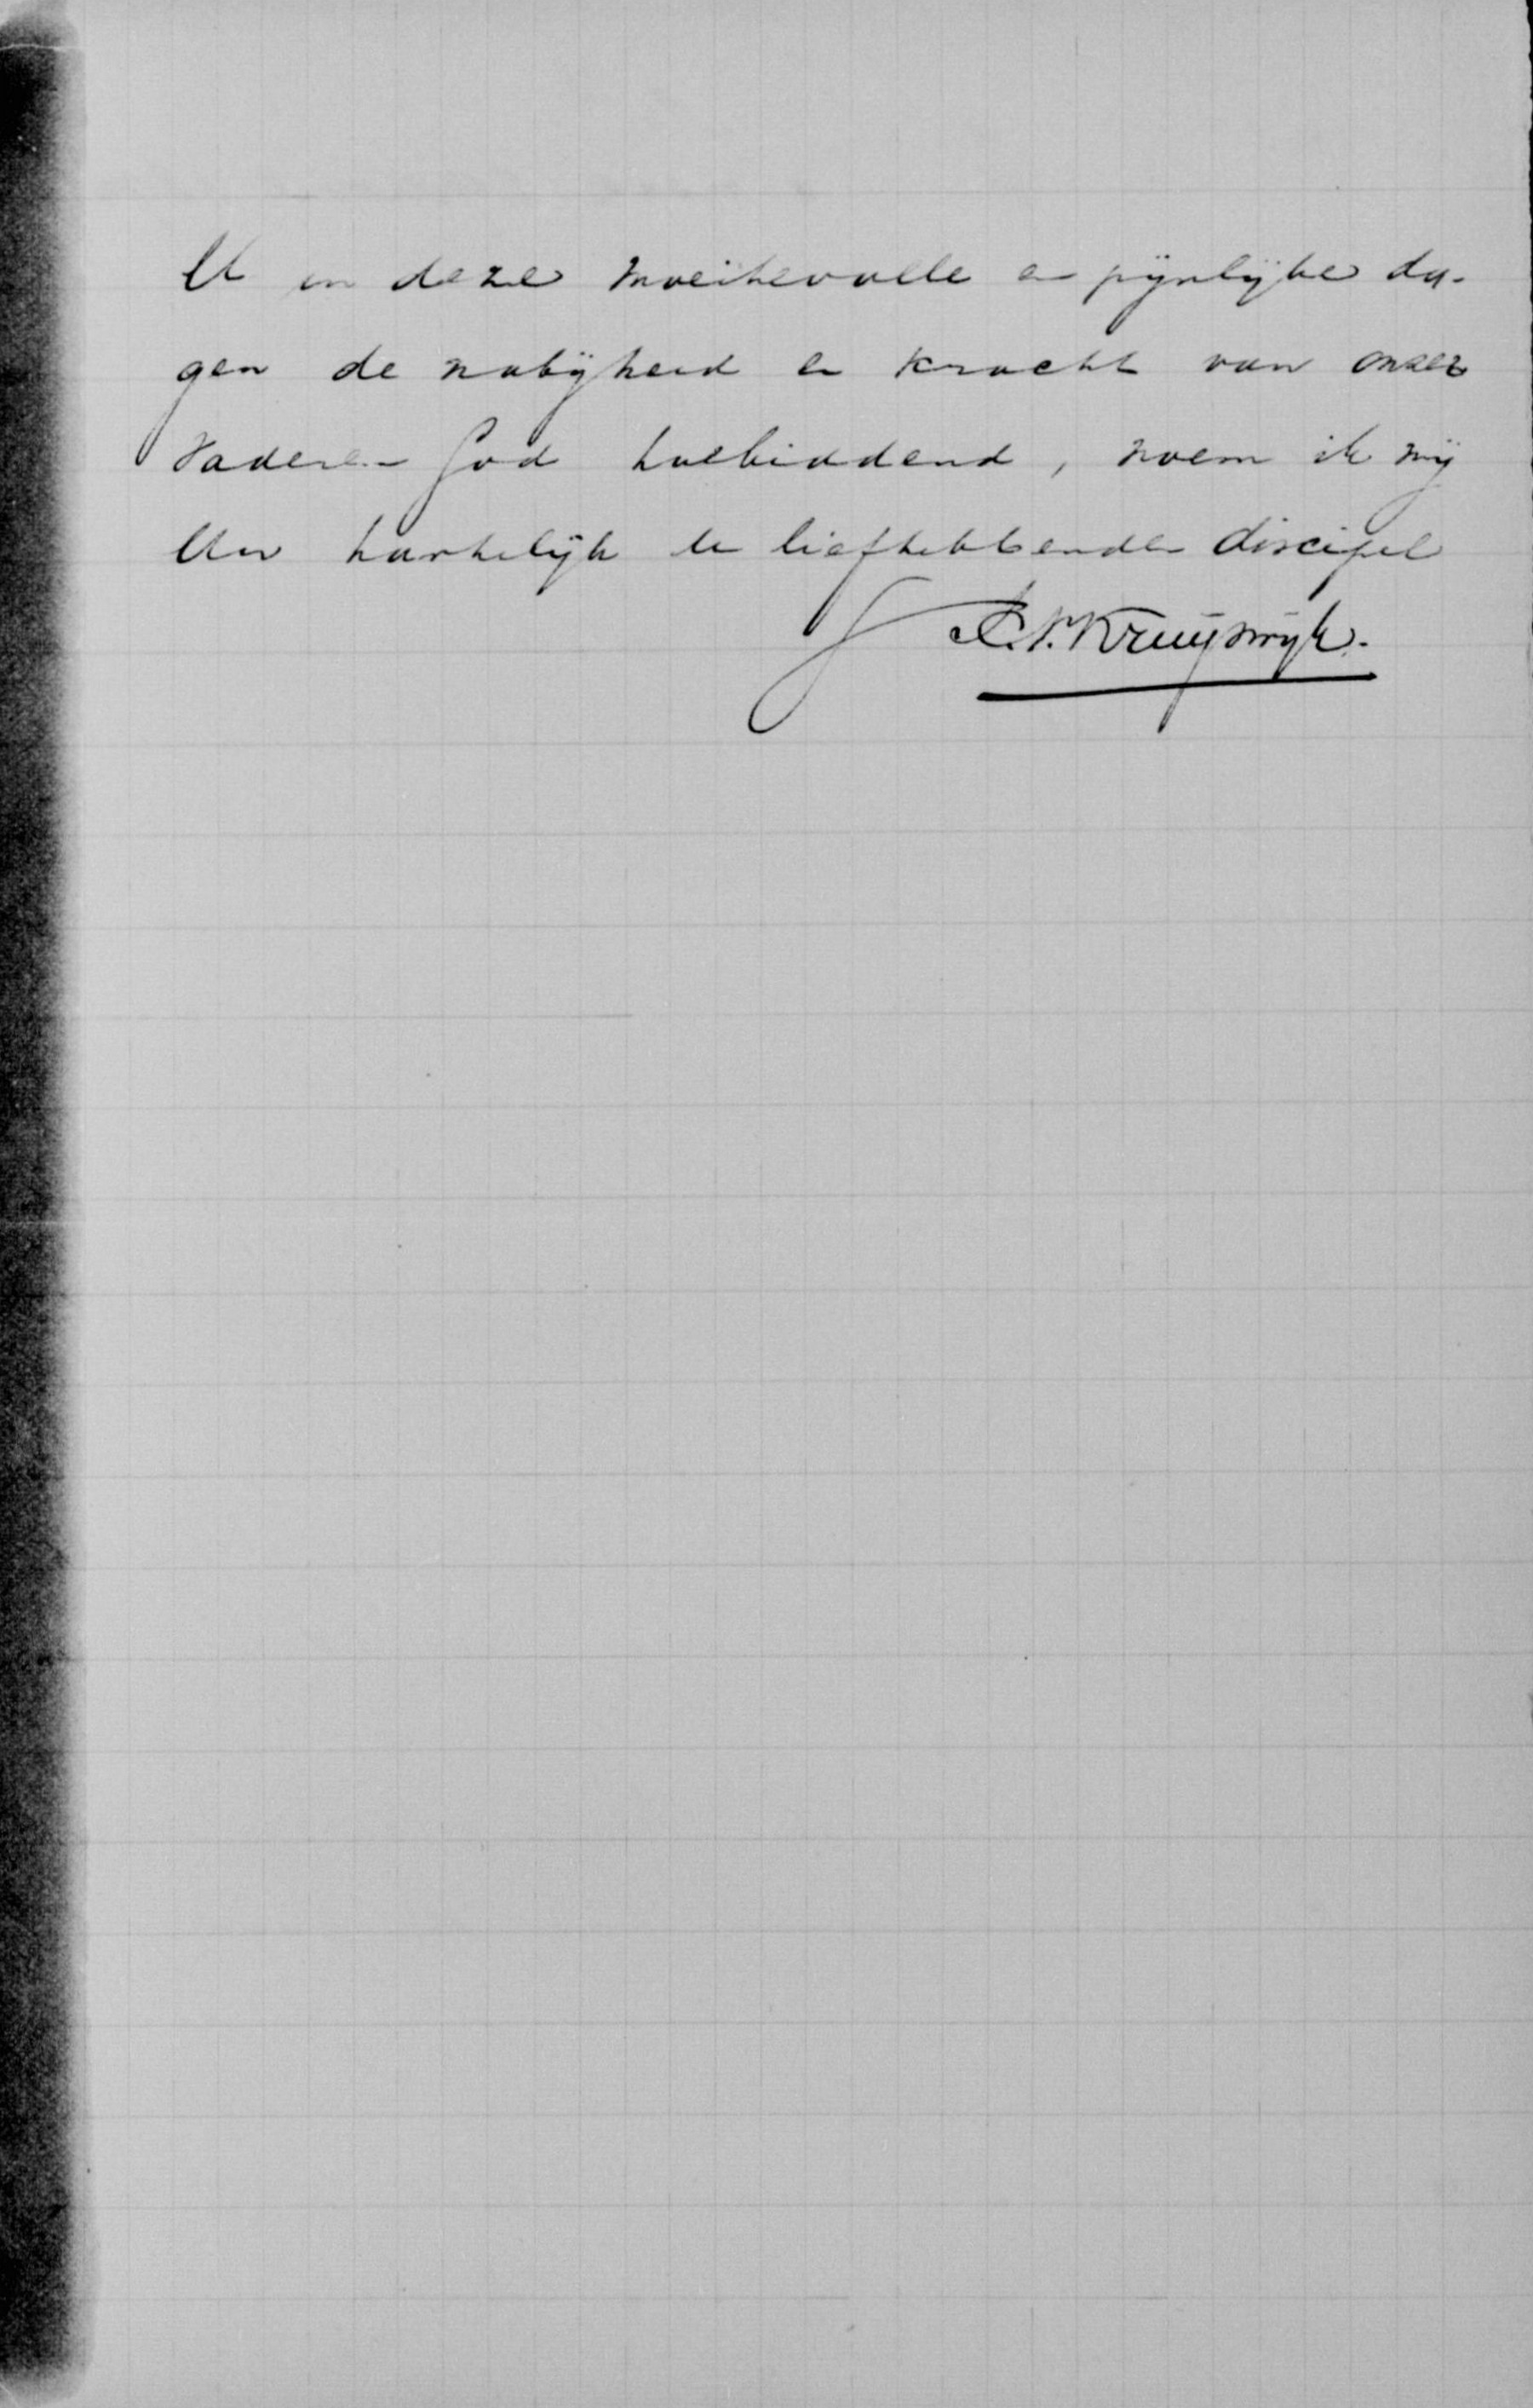 U in deze moeitevolle en pijnlijke da-
gen de nabijheid en kracht van onzer
Vaderen God toebiddend, noem ik mij
Uw hartelijk U liefhebbenden discipel
P. N. Kruyswijk.